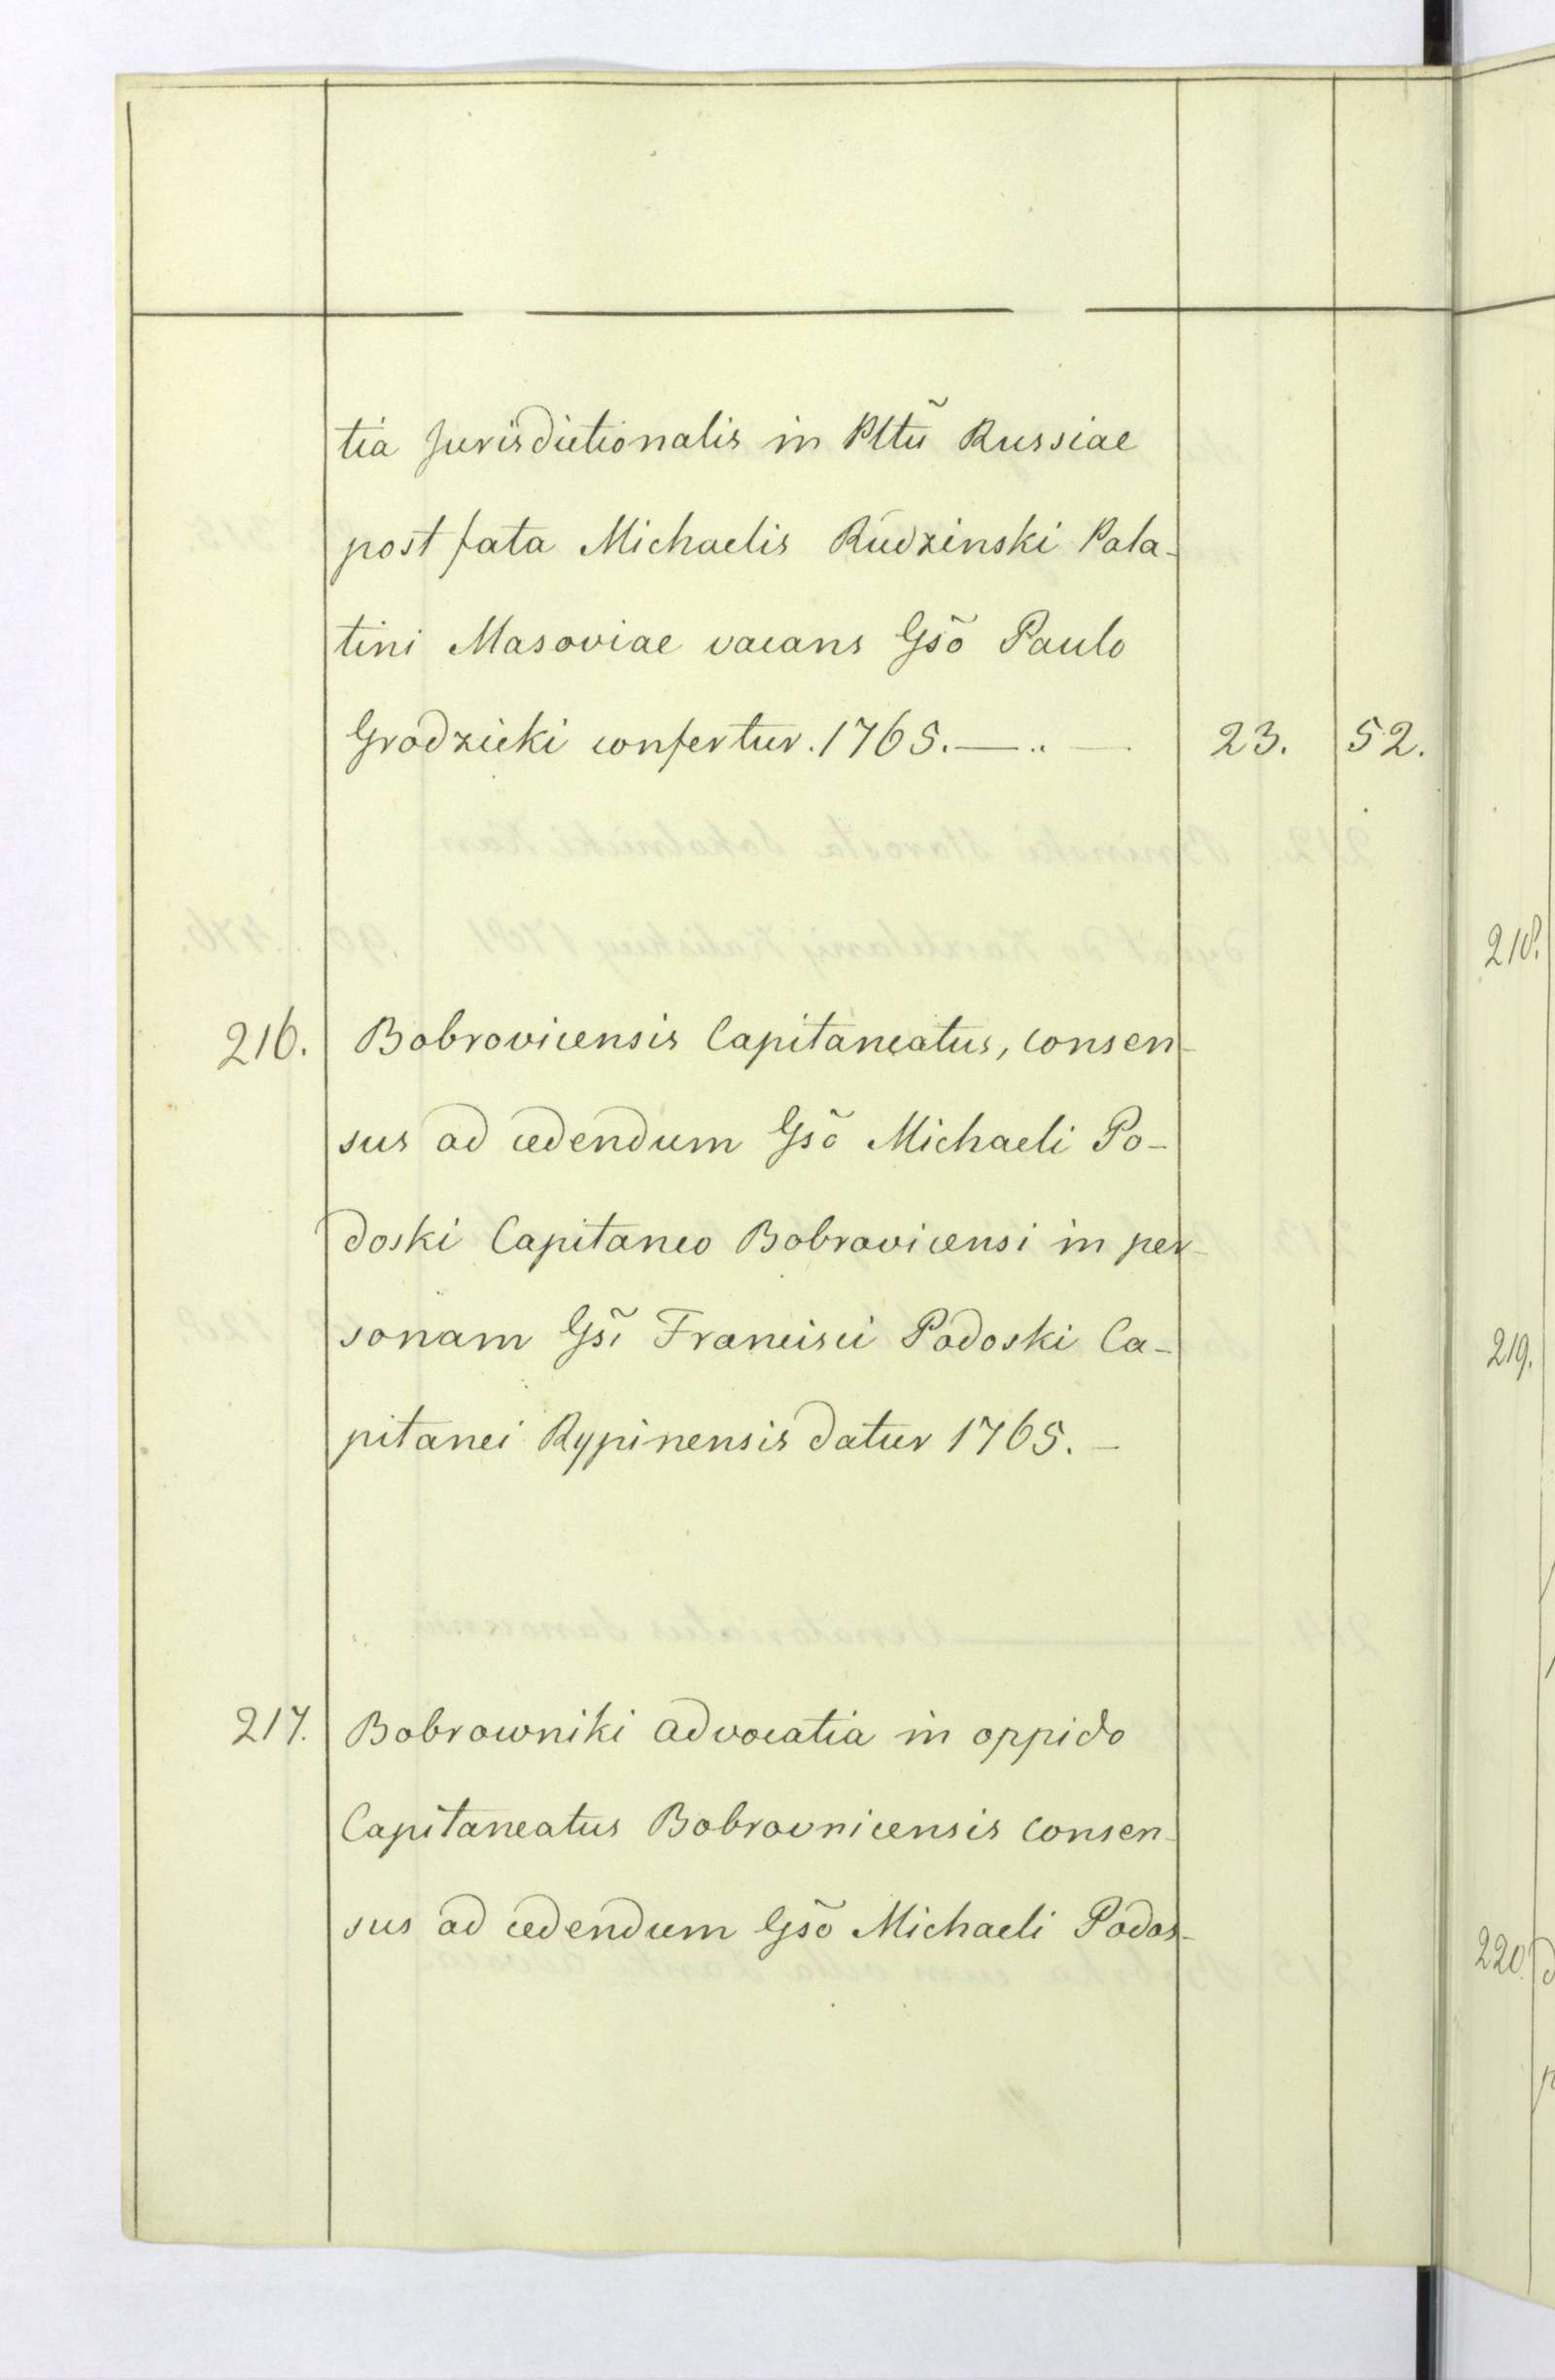 tia Jurisdictionalis in Plttũ Russiae
post fata Michaelis Rudzinski Pala-
tini Masoviae vacans Gsõ Paulo
Grodzicki confertur. 1765. — .. — 23. 52.
216. Bobrovicensis Capitaneatus, consen-
sus ad cedendum Gsõ Michaeli Po-
doski Capitaneo Bobrovicensi in per-
sonam Gsĩ Francisci Podoski Ca-
pitanei Rypinensis datur 1765. —
217. Bobrowniki advocatia in oppido
Capitaneatus Bobrovnicensis consen-
sus ad cedendum Gsõ Michaeli Podos-
218.
219.
220.